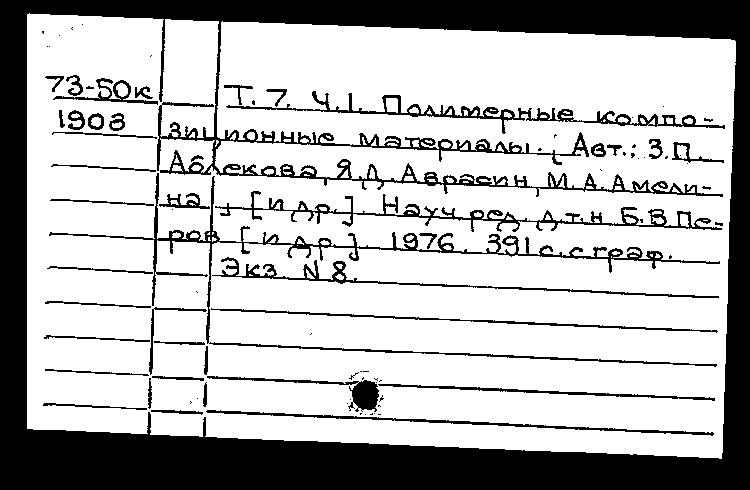 73-50к Т. 7. Ч.1. Полимерные компо-
1903 зиционные материалы. [Авт.: З.П.
Аблекова, Я.Д. Аврасин, М.А. Амели-
на, [и др.] Науч. ред. д.т.н Б.В Пе-
ров [и др.]. 1976. 391 с. с граф.
Экз. N 8.